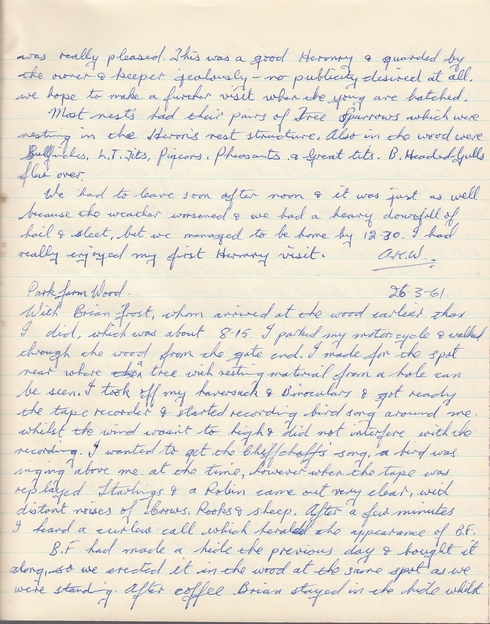 was really pleased. This was a good Heronry & guarded by
the owner & keeper jealously - no publicity desired at all.
we hope to make a further visit when the young are hatched.
Most nests had their pairs of Tree Sparrows which were
nesting in the Heron's nest structure. Also in the wood were
Bullfinches, L.T. Tits, Pigeons, Pheasants & Great tits. B. Headed Gulls
flew over.
We had to leave soon after noon & it was just as well
because the weather worsened & we had a heavy downfall of
hail & sleet, but we managed to be home by 12-30. I had
really enjoyed my first Heronry visit. A.K.W.
Park farm Wood. 26-3-61.
With Brian Frost, whom arrived at the wood earlier than
I did, which was about 8-15. I parked my motorcycle & walked
through the wood from the gate end. I made for the spot
near where a tree with nesting material from a hole can
be seen. I took off my haversack & Binoculars & got ready
the tape recorder & started recording bird song around me.
whilst the wind wasn't to high & did not interfere with the
recording. I wanted to get the Chiffchaff's song, a bird was
singing above me at the time, however when the tape was
replayed Starlings & a Robin came out very clear, with
distant noises of Crows, Rooks & sheep. After a few minutes
I heard a curlew call which herald the appearance of B.F.
B.F had made a hide the previous day & bought it
along, so we erected it in the wood at the same spot as we
were standing. After coffee Brian stayed in the hide whilst